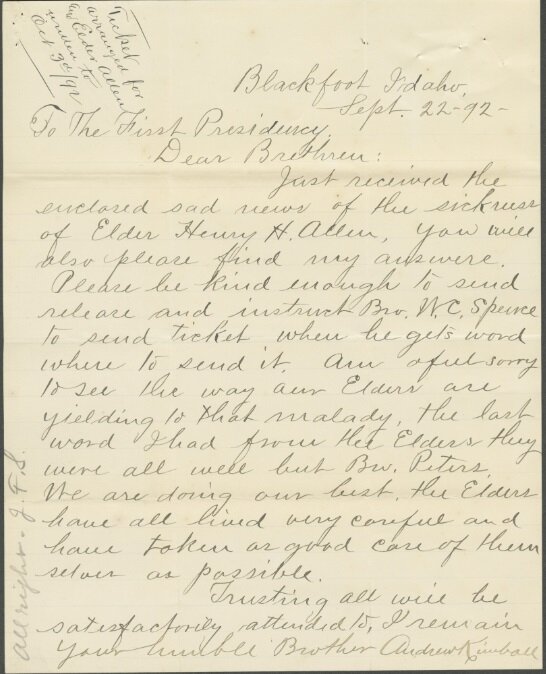 Ticket for
arranged for
an Elder Allen
Oct 3d/92
Blackfoot Idaho,
Sept. 22-92-
To The First Presidency.
Dear Brethren:
Just received the
enclosed sad news of the sickness
of Elder Henry H. Allen, you will
also please find my answere.
Please be kind enough to send
release and instruct Bro. W. C. Spence
to send ticket when he gets word
where to send it. Am aful sorry
to see the way our Elders are
yielding to that malady, the last
word I had from the Elders they
were all well but Bro. Peters.
We are doing our best, the Elders
have all lived very careful and
have taken as good care of them
selves as possible.
Trusting all will be
satisfactorily attended to, I remain
Your humble Brother Andrew Kimball
All right - J. F. S.